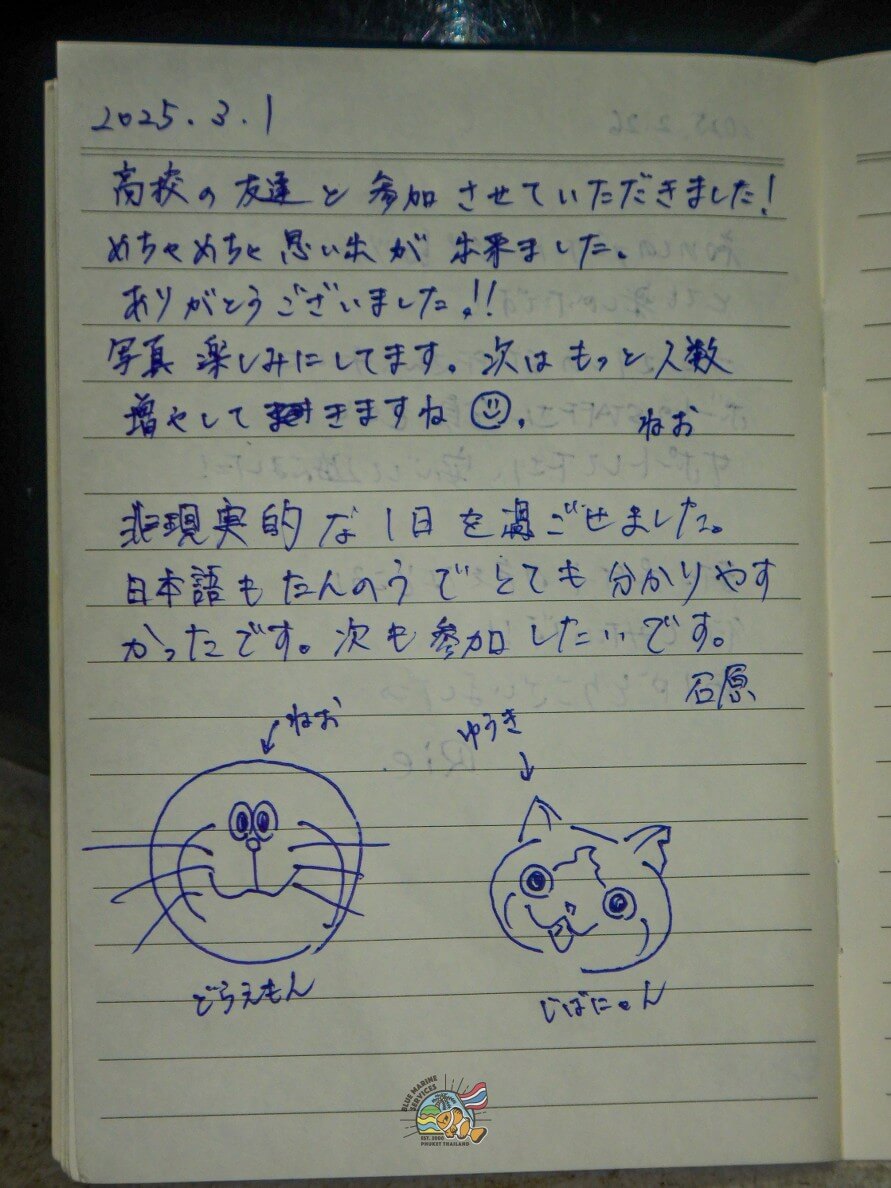 2025.3.1
高校の友達と参加させていただきました!
めちゃめちゃ思い出が出来ました。
ありがとうございました!!
写真楽しみにしてます。次はもっと人数
増やしてきますね☺.
ねお
非現実的な1日を過ごせました。
日本語もたんのうでとても分かりやす
かったです。次も参加したいです。
石原
ねお
ゆうき
どらえもん
じばにゃん
BLUE MARINE SERVICES
EST. 2000
PHUKET THAILAND